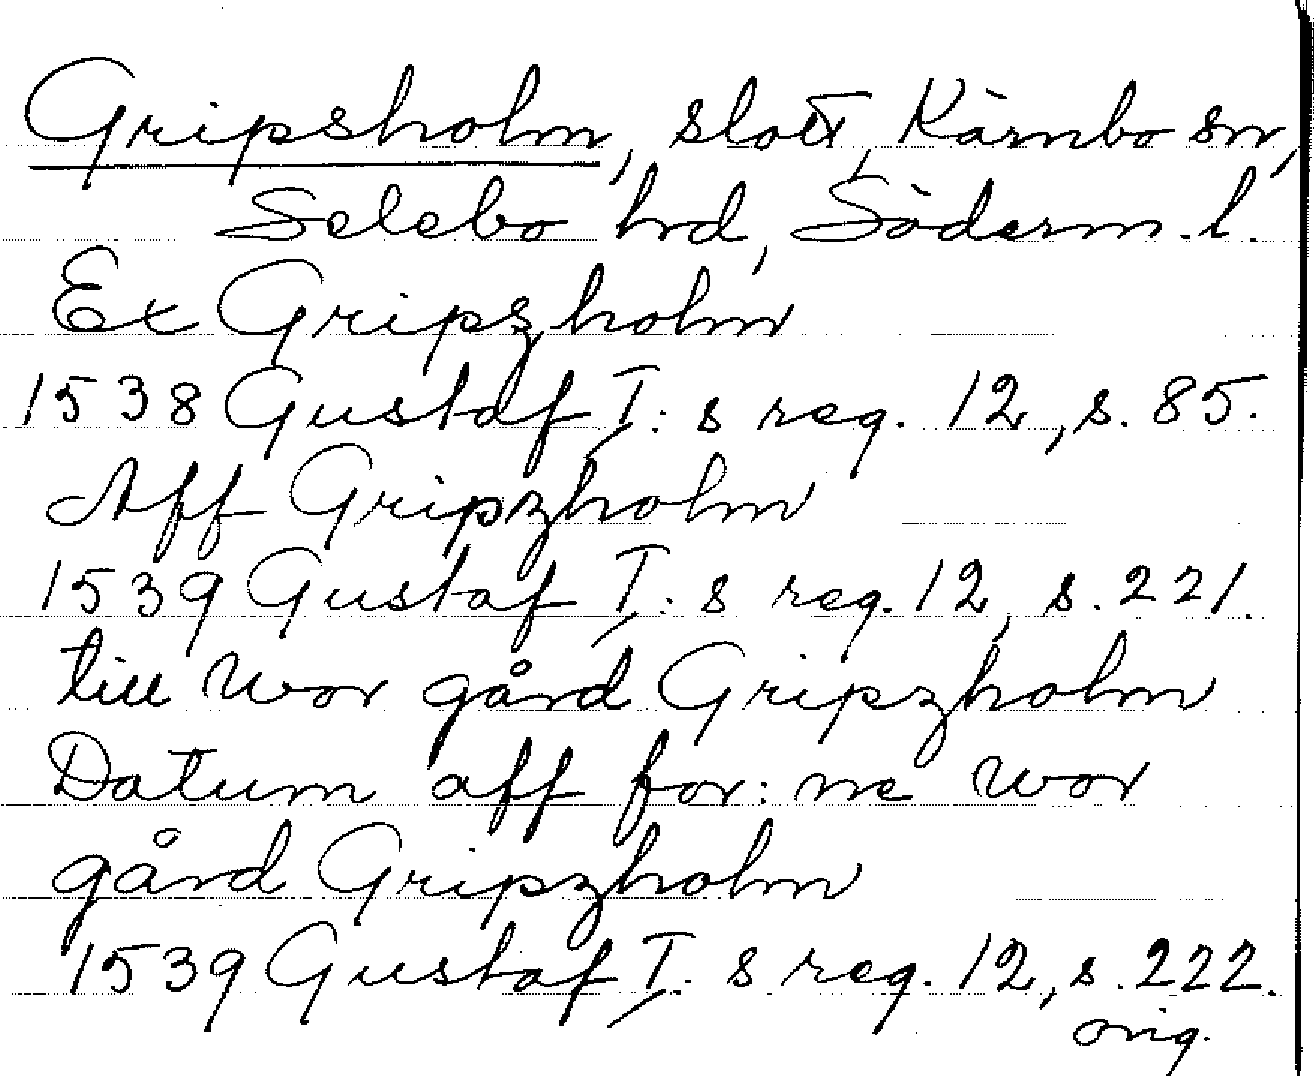 Gripsholm, slott, Kärnbo sn,
Selebo hd, Söderm. l.
Ex Gripszholm
1538 Gustaf I:s reg. 12, s. 85.
Aff Gripzholm
1539 Gustaf I:s reg. 12, s. 221.
till wor gård Gripzholm
Datum aff for:ne wor
gård Gripzholm
1539 Gustaf I:s reg. 12, s. 222.
orig.